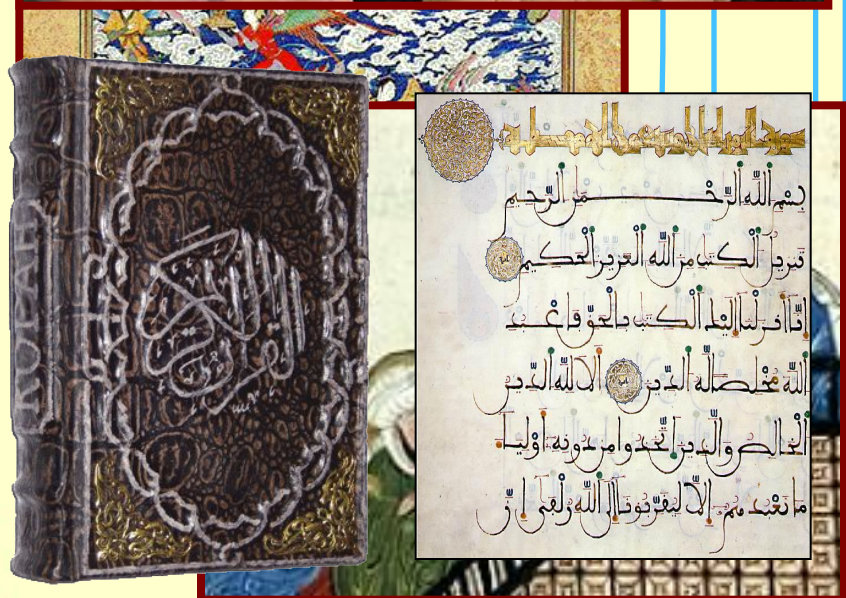 KORAN
القرآن الكريم
بِسْمِ اللَّهِ الرَّحْمَٰنِ الرَّحِيمِ
تَنزِيلُ الْكِتَٰبِ مِنَ اللَّهِ الْعَزِيزِ الْحَكِيمِ
إِنَّا أَنزَلْنَا إِلَيْكَ الْكِتَٰبَ بِالْحَقِّ فَاعْبُدِ
اللَّهَ مُخْلِصًا لَهُ الدِّينَ أَلَا لِلَّهِ الدِّينُ
الْخَالِصُ وَالَّذِينَ اتَّخَذُوا مِن دُونِهِ أَوْلِيَاءَ
مَا نَعْبُدُهُمْ إِلَّا لِيُقَرِّبُونَا إِلَى اللَّهِ زُلْفَىٰ إِنَّ